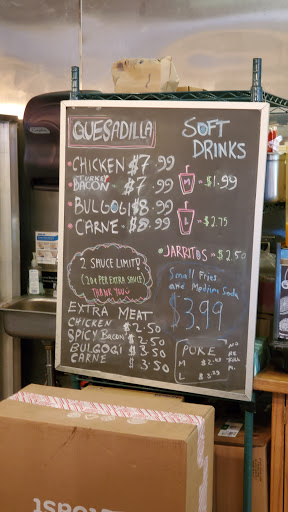 QUESADILLA
CHICKEN $7.99
TURKEY
BACON $7.99
BULGOGI $8.99
CARNE $8.99
SOFT
DRINKS
M = $1.99
L = $2.75
JARRITOS = $2.50
2 SAUCE LIMIT!
(20¢ PER EXTRA SAUCE)
THANK YOU
Small Fries
and Medium Soda
$3.99
EXTRA MEAT
CHICKEN $2.50
SPICY BACON $2.50
BULGOGI $3.50
CARNE $3.50
POKE
M
L
NO
RE